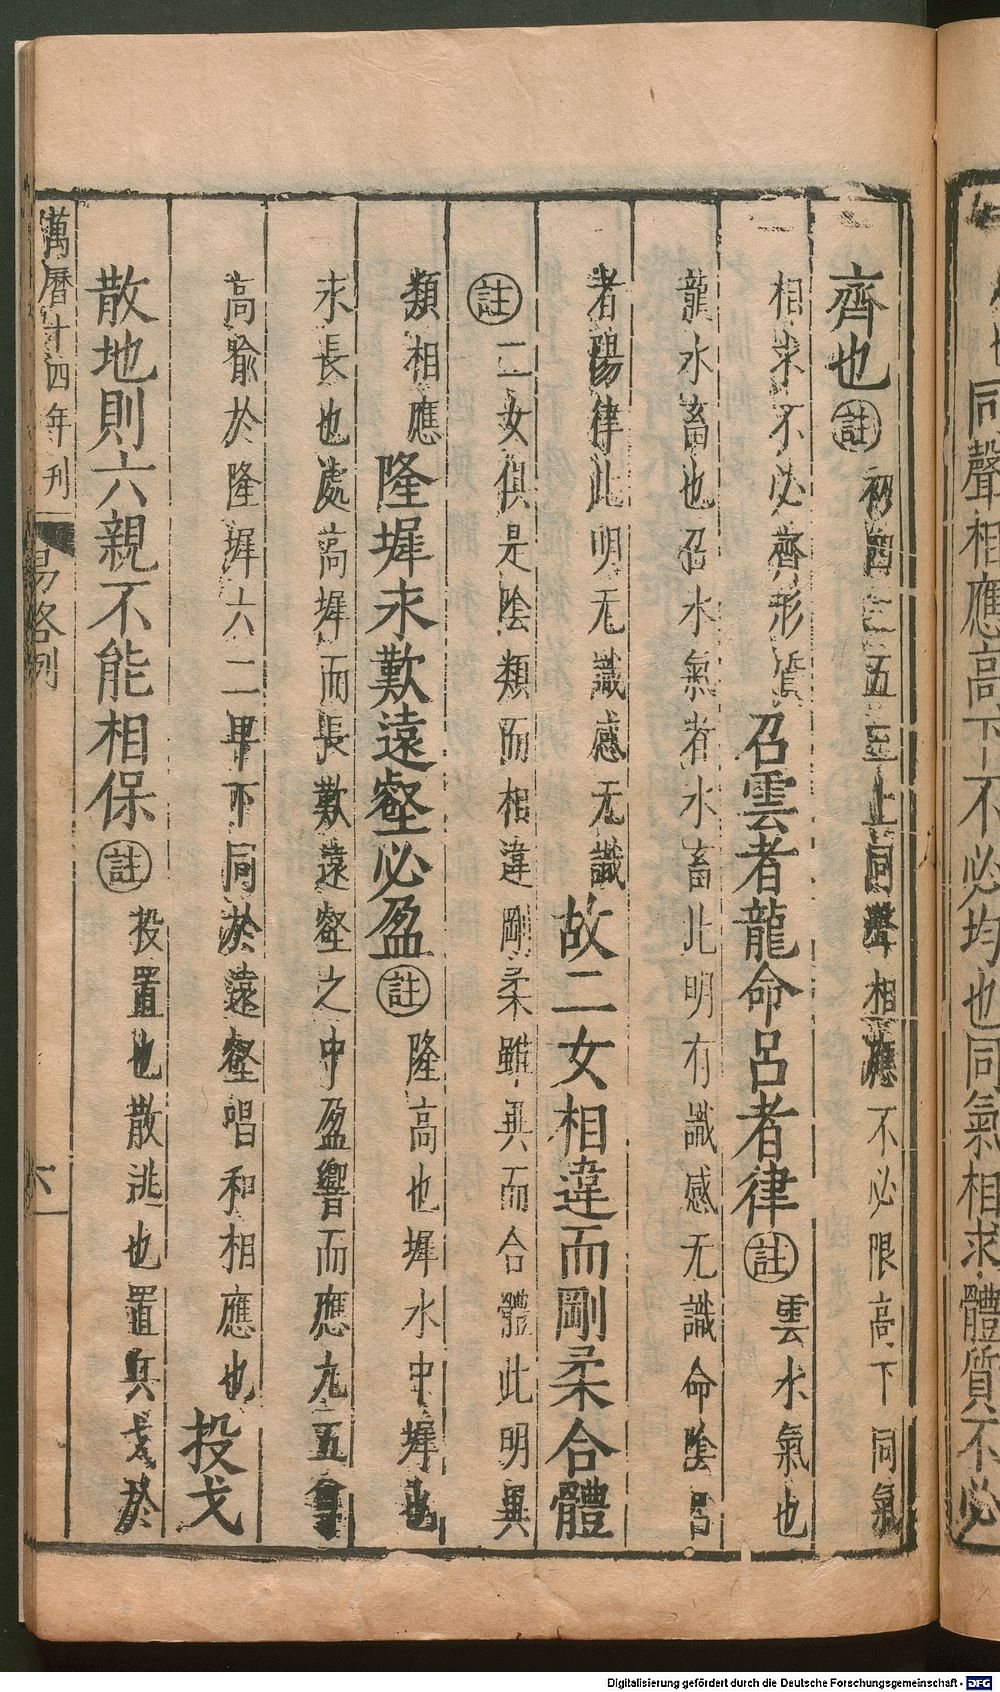 也同聲相應高下不必均也同氣相求體質不必
齊也註初四二五三上同聲相應不必限高下同氣
相求不必齊形質召雲者龍命呂者律註雲水氣也
龍水畜也召水氣者水畜此明有識感无識命陰呂
者陽律此明无識感无識故二女相違而剛柔合體
註二女俱是陰類而相違剛柔雖異而合體此明異
類相應隆墀永歎遠壑必盈註隆高也墀水中墀也
永長也處高墀而長歎遠壑之中盈響而應九五尊
高喻於隆墀六二卑下同於遠壑唱和相應也投戈
散地則六親不能相保註投置也散逃也置兵戈於
萬曆十四年刊 易略例 六
Digitalisierung gefördert durch die Deutsche Forschungsgemeinschaft - DFG